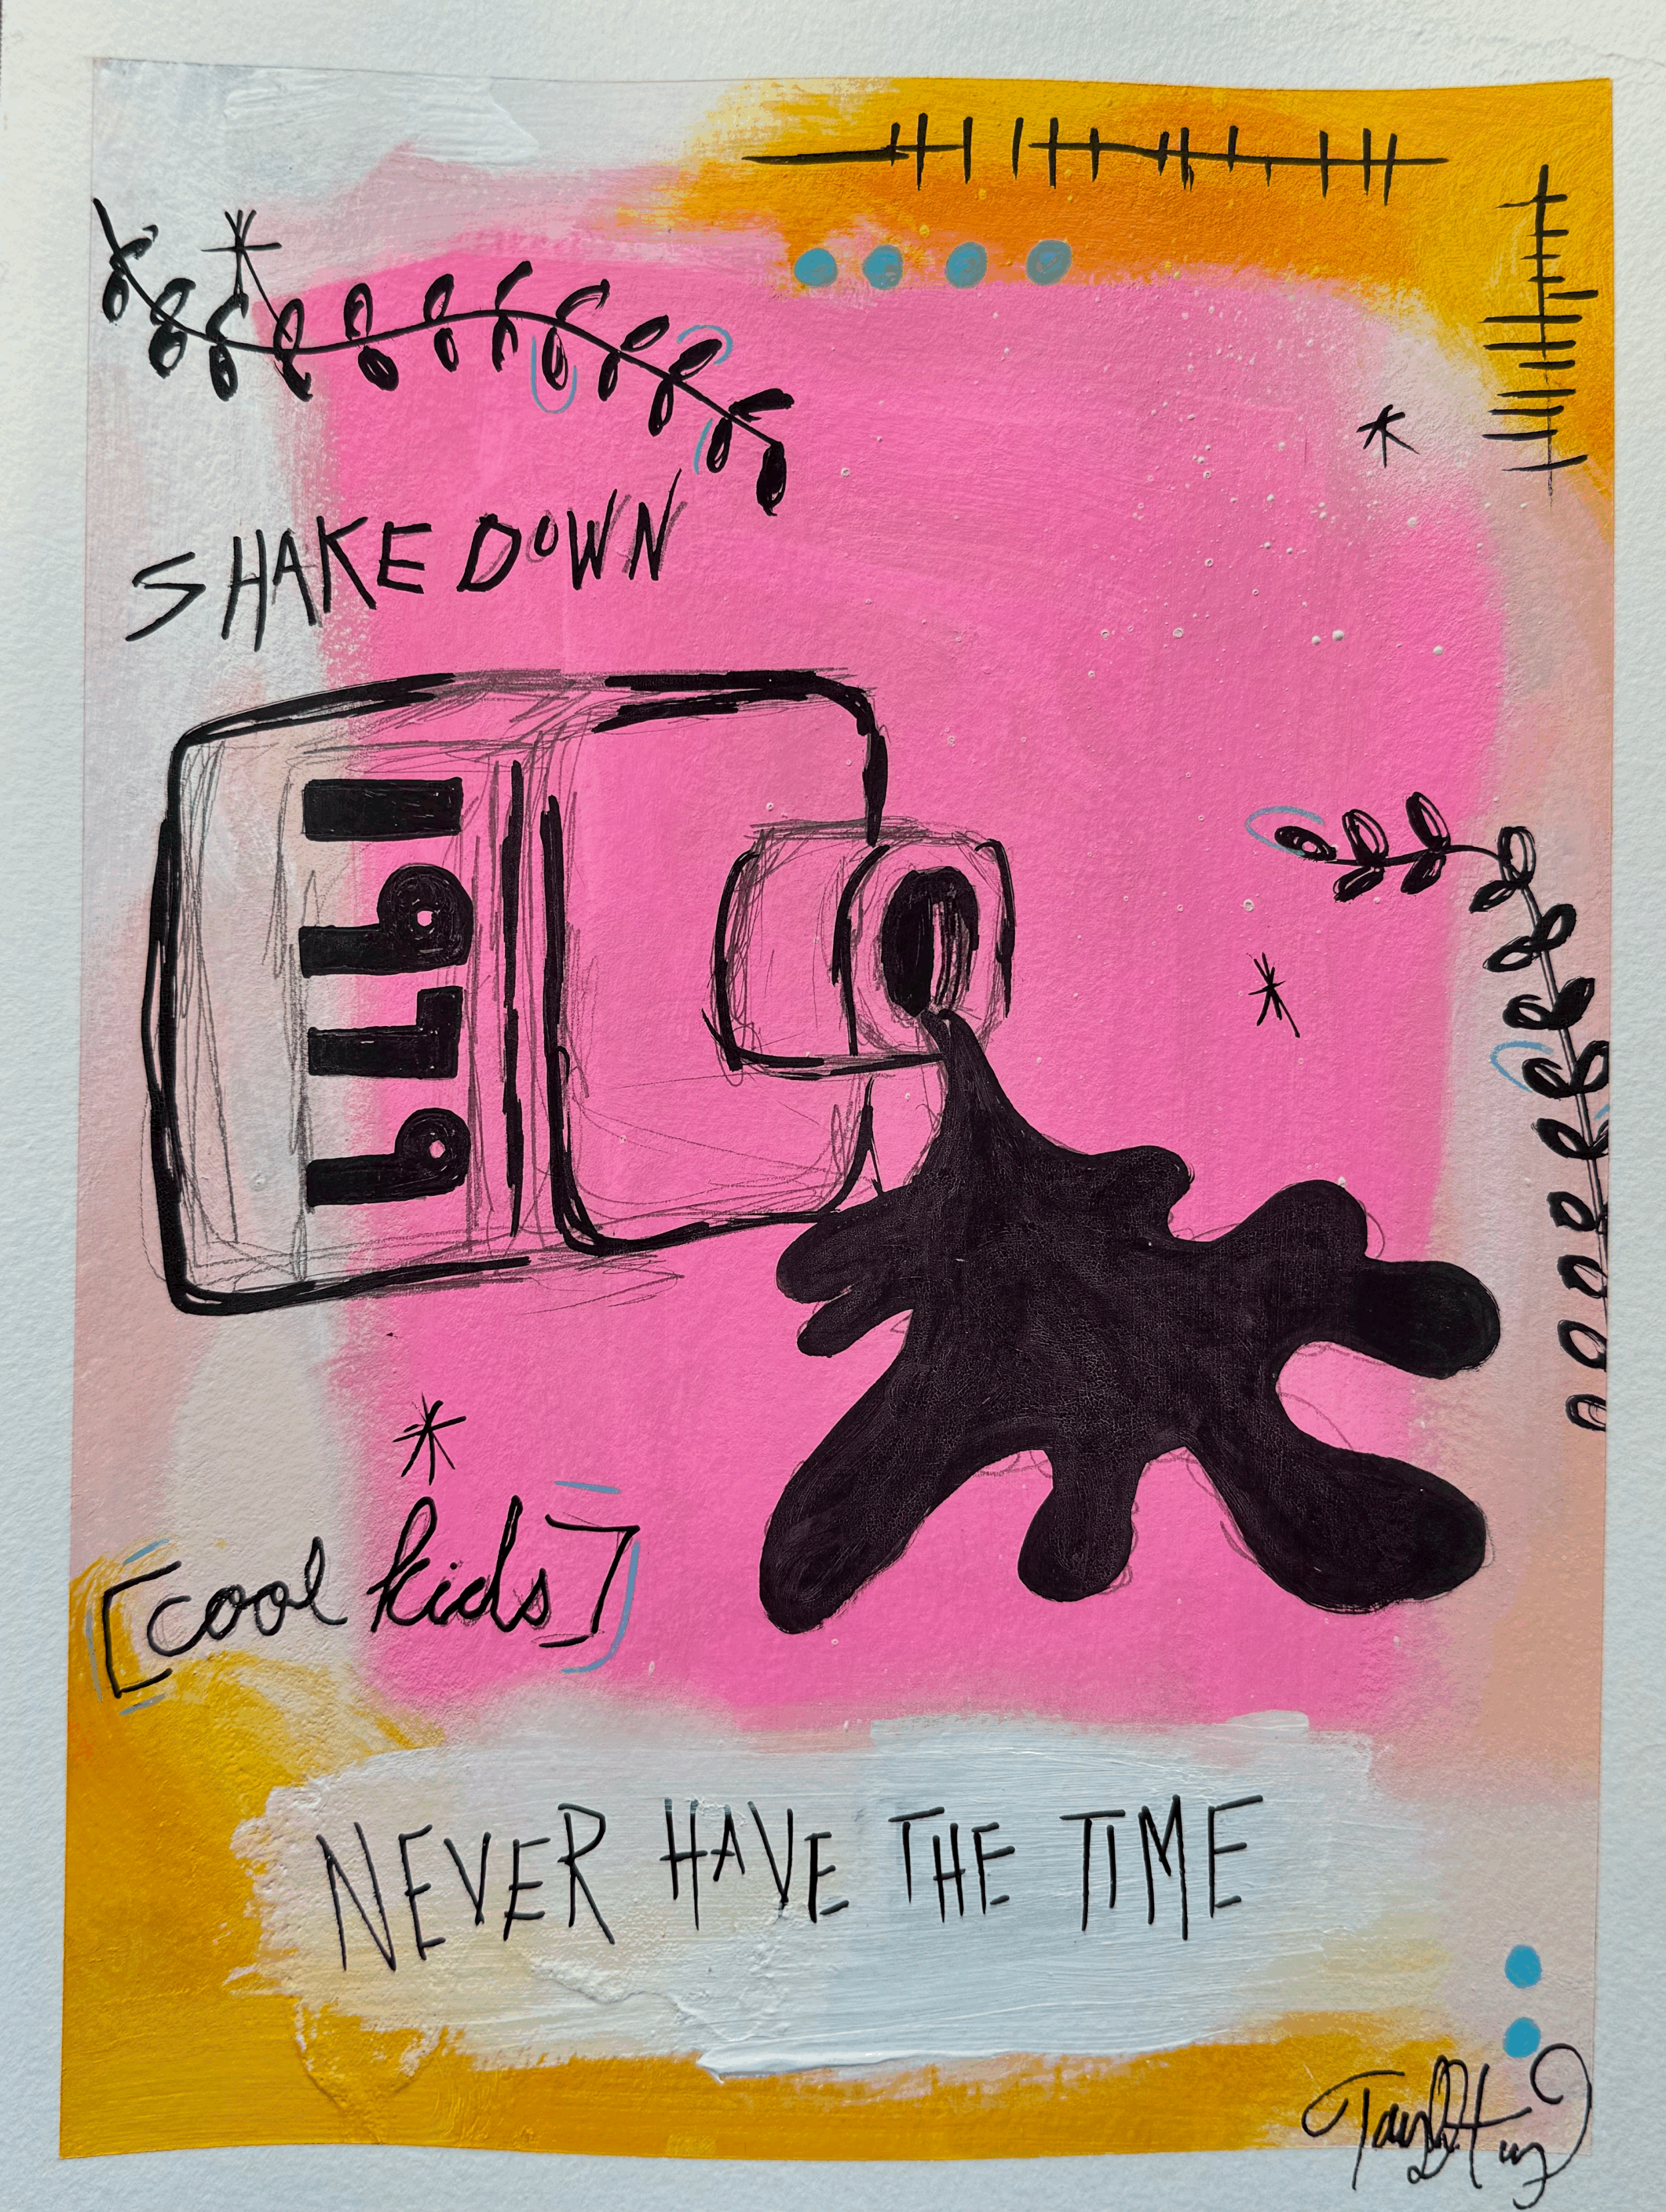 SHAKE DOWN
1979
[cool kids]
NEVER HAVE THE TIME